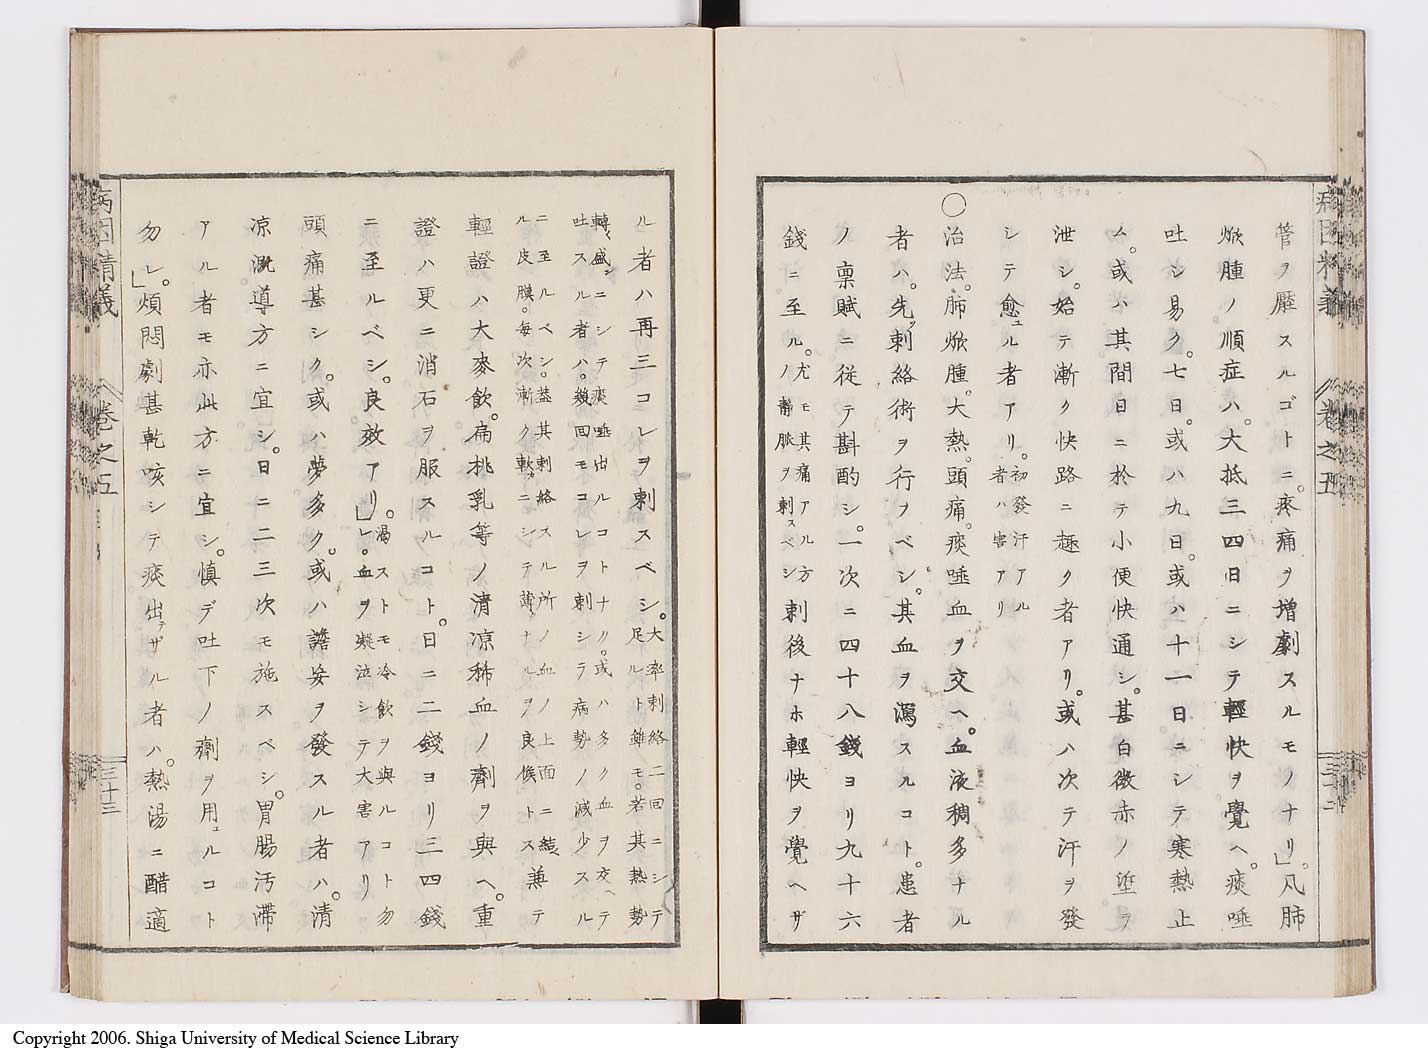 管ヲ壓スルゴトニ。疼痛ヲ增劇スルモノナリ」。凡肺
焮腫ノ順症ハ。大抵三四日ニシテ輕快ヲ覺ヘ。痰唾
吐シ易ク。七日。或ハ九日。或ハ十一日ニシテ寒熱止
ム。或ハ其間日ニ於テ小便快通シ。甚白微赤ノ垽ヲ
泄シ。始テ漸ク快路ニ趣ク者アリ。或ハ次テ汗ヲ發
シテ愈ユル者アリ。初發汗アル
者ハ害アリ
〇治法。肺焮腫。大熱。頭痛。痰唾血ヲ交ヘ。血液稠多ナル
者ハ。先ヅ刺絡術ヲ行フベシ。其血ヲ瀉スルコト。患者
ノ稟賦ニ從テ斟酌シ。一次ニ四十八錢ヨリ九十六
錢ニ至ル。尤モ其痛アル方
ノ靜脈ヲ刺スベシ刺後ナホ輕快ヲ覺ヘザ
病因精義 卷之五 三十二
ル者ハ再三コレヲ刺スベシ。大率刺絡二回ニシテ
足ルト雖モ。若其熱勢
轉盛ニシテ痰唾出ルコトナク。或ハ多ク血ヲ交ヘテ
吐スル者ハ。幾回モコレヲ刺シテ病勢ノ減少スル
ニ至ルベシ。蓋其刺絡スル所ノ血ノ上面ニ結
ル皮膜。每次漸ク軟ニシテ薄ナルヲ良候トス兼テ
輕證ハ大麥飮。扁桃乳等ノ清涼稀血ノ劑ヲ與ヘ。重
證ハ更ニ消石ヲ服スルコト。日ニ二錢ヨリ三四錢
ニ至ルベシ。良效アリ」。渴ストモ冷飮ヲ與ルコト勿
レ。血ヲ凝泣シテ大害アリ
頭痛甚シク。或ハ夢多ク。或ハ譫妄ヲ發スル者ハ。清
涼漑導方ニ宜シ。日ニ二三次モ施スベシ。胃腸汚滯
アル者モ亦此方ニ宜シ。愼デ吐下ノ劑ヲ用ユルコト
勿レ」。煩悶劇甚乾咳シテ痰出デザル者ハ。熱湯ニ醋適
病因精義 卷之五 三十三
Copyright 2006. Shiga University of Medical Science Library